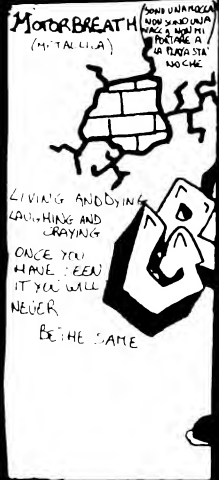 MOTORBREATH
(METALLICA)
SONO UNA MOCCA
NON SONO UNA
VACCA NON MI
PORTARE A
LA PLAYA STA
NOCHE
LIVING AND DYING
LAUGHING AND
CRAYING
ONCE YOU
HAVE SEEN
IT YOU WILL
NEVER
BE THE SAME